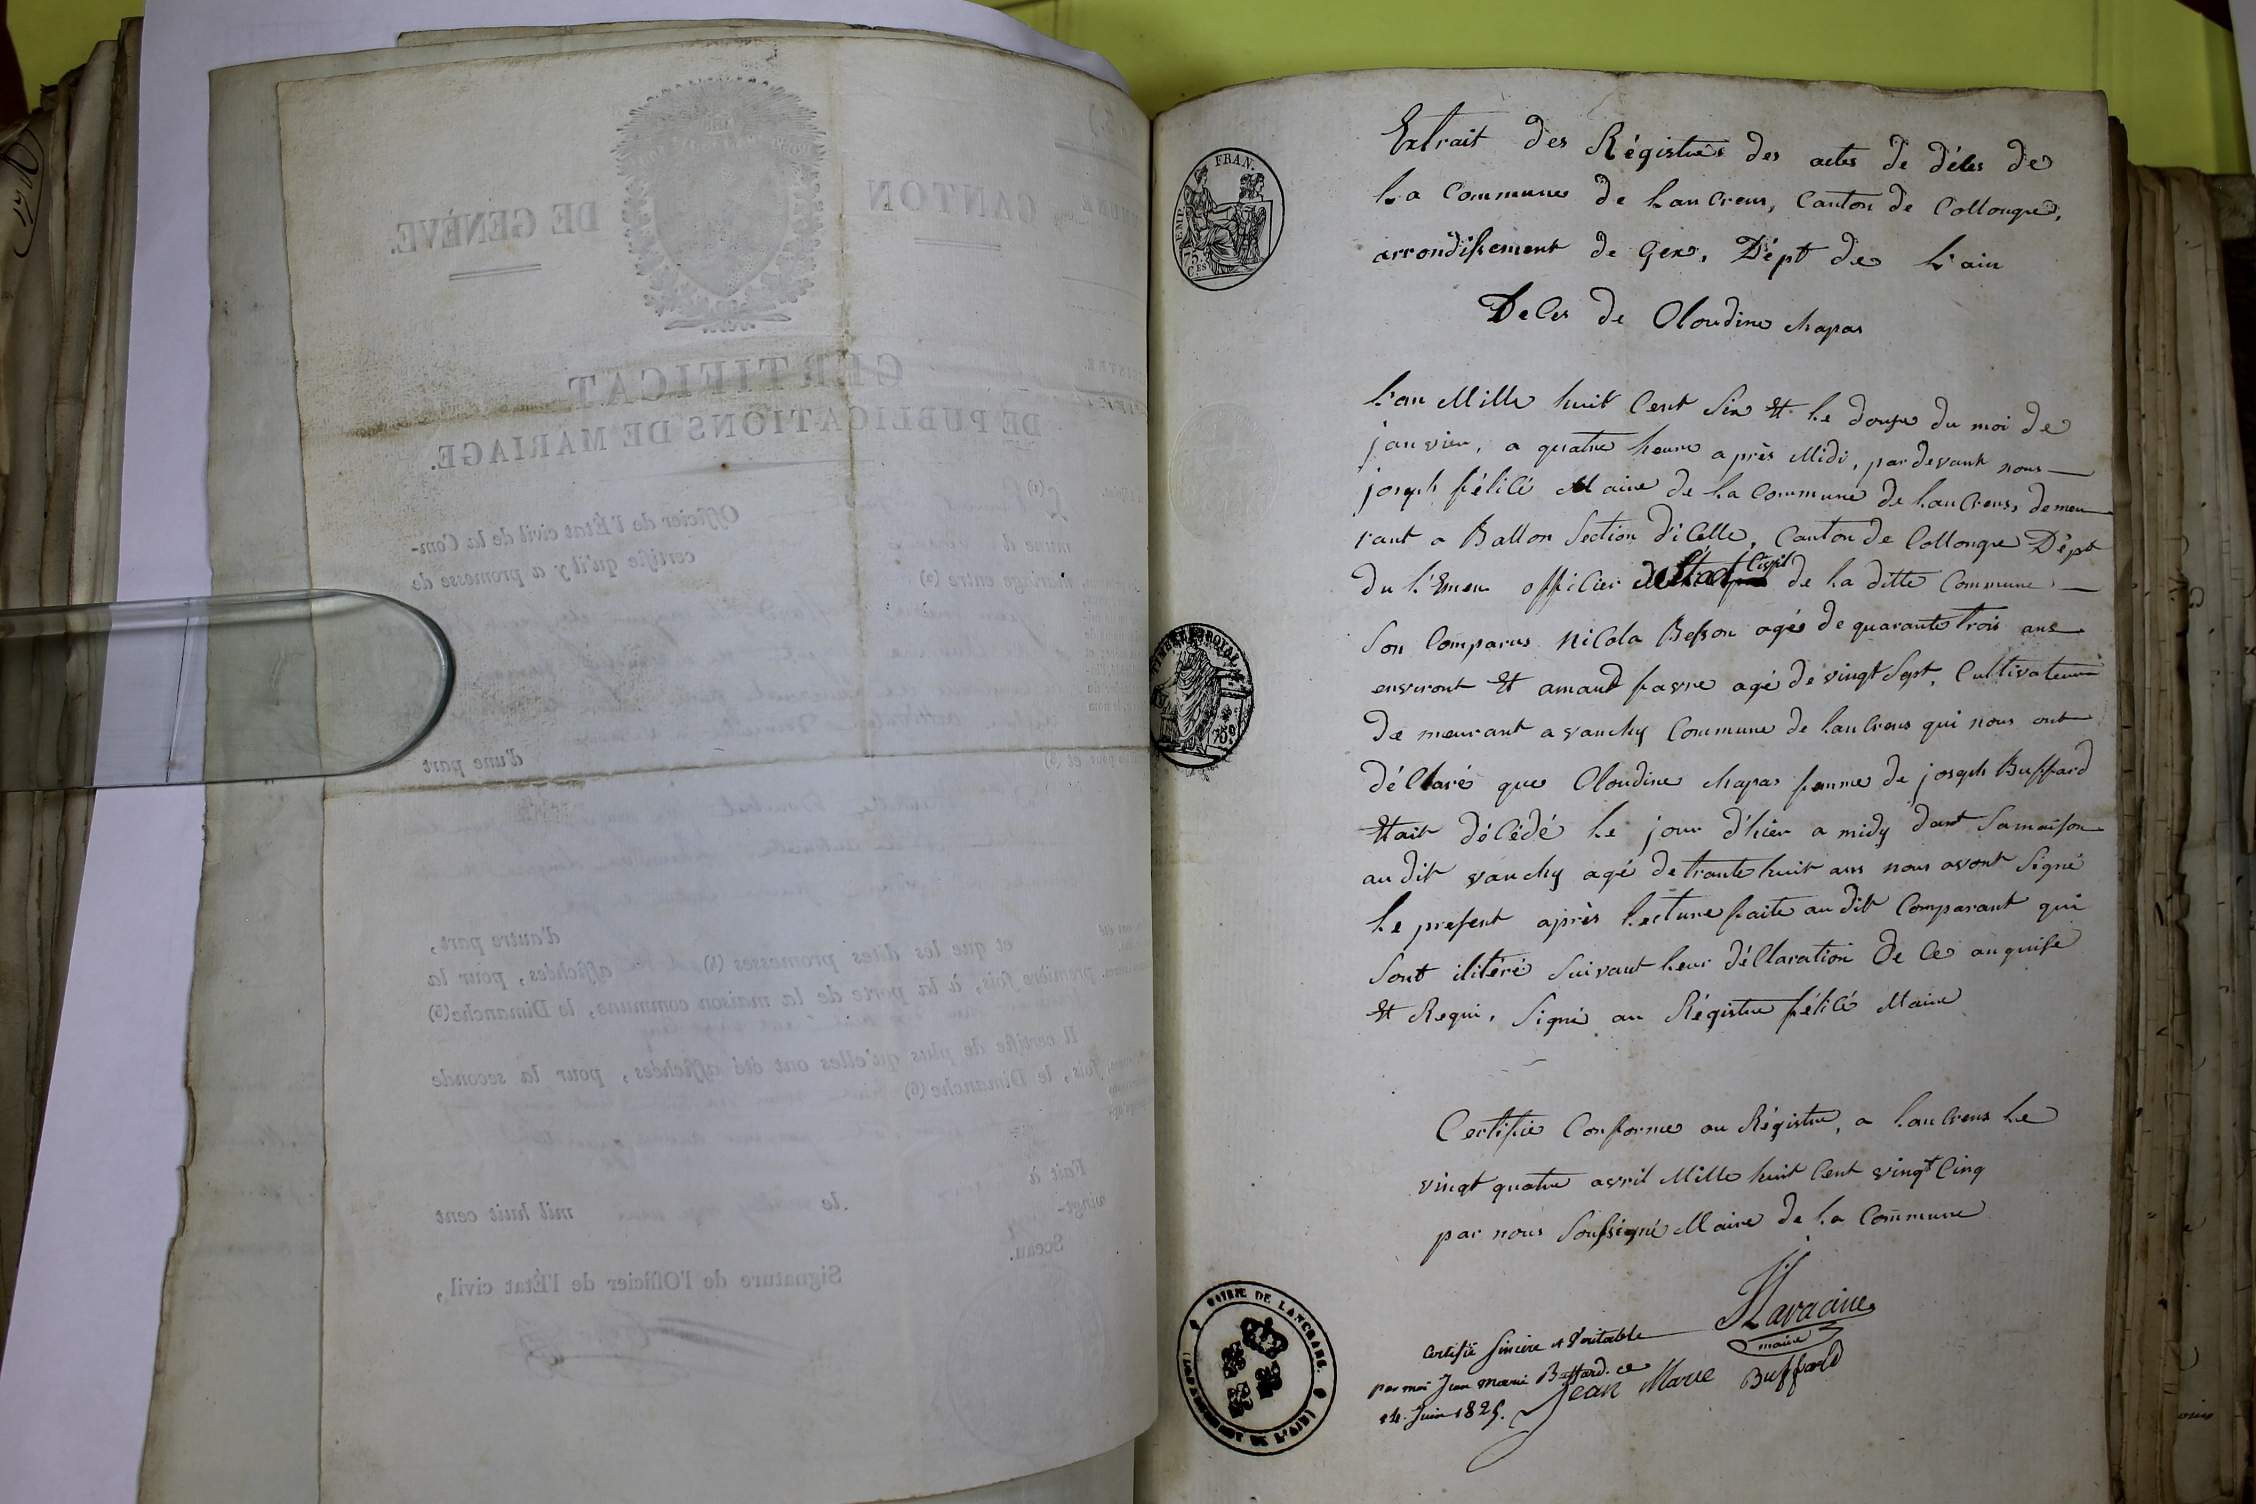 CANTON DE GENÈVE.
CERTIFICAT
DE PUBLICATIONS DE MARIAGE.
Officier de l'État civil de la Com-
mune d
certifie qu'il y a promesse de
mariage entre (2)
d'une part
d'autre part,
et que les dites promesses (4) affichées, pour la
première fois, à la porte de la maison commune, le Dimanche (5)
Il certifie de plus qu'elles ont été affichées, pour la seconde
fois, le Dimanche (6)
Fait à le mil huit cent
vingt-
Sceau.
Signature de l'Officier de l'État civil,
EMP. FRAN.
75.
C.ES
TIMBRE ROYAL
MAIRIE DE LANCRANS.
(DÉPARTEMENT DE L'AIN)
Extrait des Régistres des actes de déces de
La Commune de Lancrens, Canton de Collonge,
arrondissement de Gex, Dépt de L'ain
Deces de Cloudine chapas
L'an Mille huit Cent Six Et Le douze du moi de
janvier, a quatre heure après Midi, pardevant nous
joseph félicé Maire de La Commune de Lancrens, demeu
rant a Ballon Section d'iCelle, Canton de Collonge Dépt
du L'Emen officier de Etat Civil de La ditte Commune
Son Comparus Nicola Besson agés de quarante trois ans
environt Et amand favre agé de vingt Sept, Cultivateurs
De meurant a vanchy Commune de Lancrens qui nous ont
déClaré que Cloudine chapas femme de joseph Buffard
Etait déCédé Le jour d'hier a midy dant Samaison
au dit vanchy agé detrante huit ans nous avont Signé
Le present après Lecture faite au dit Comparant qui
Sont ilitéré Suivant Leur déClaration De Ce anquise
Et Requi, Signé au Régistre félicé Maire
Certifié Conforme au Régistre, a Lancrens Le
vingt quatre avril Mille huit Cent vingt Cinq
par nous Soussigné Maire de La Commune
maire
Certifié Sincère et Véritable
par moi Jean Marie Buffard. ce
14. Juin 1825.
Jean Marie Buffard